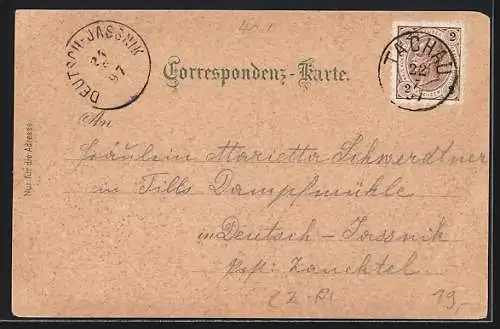 40.1
DEUTSCH-JASSNIK
24
97
TACHAU
22
97
2 2
2 2
Correspondenz-Karte.
An
Nur für die Adresse
Fräulein Marietta Schwerdtner
in Tills Dampfmühle
in Deutsch-Jassnik
Post: Zauchtel.
19,-